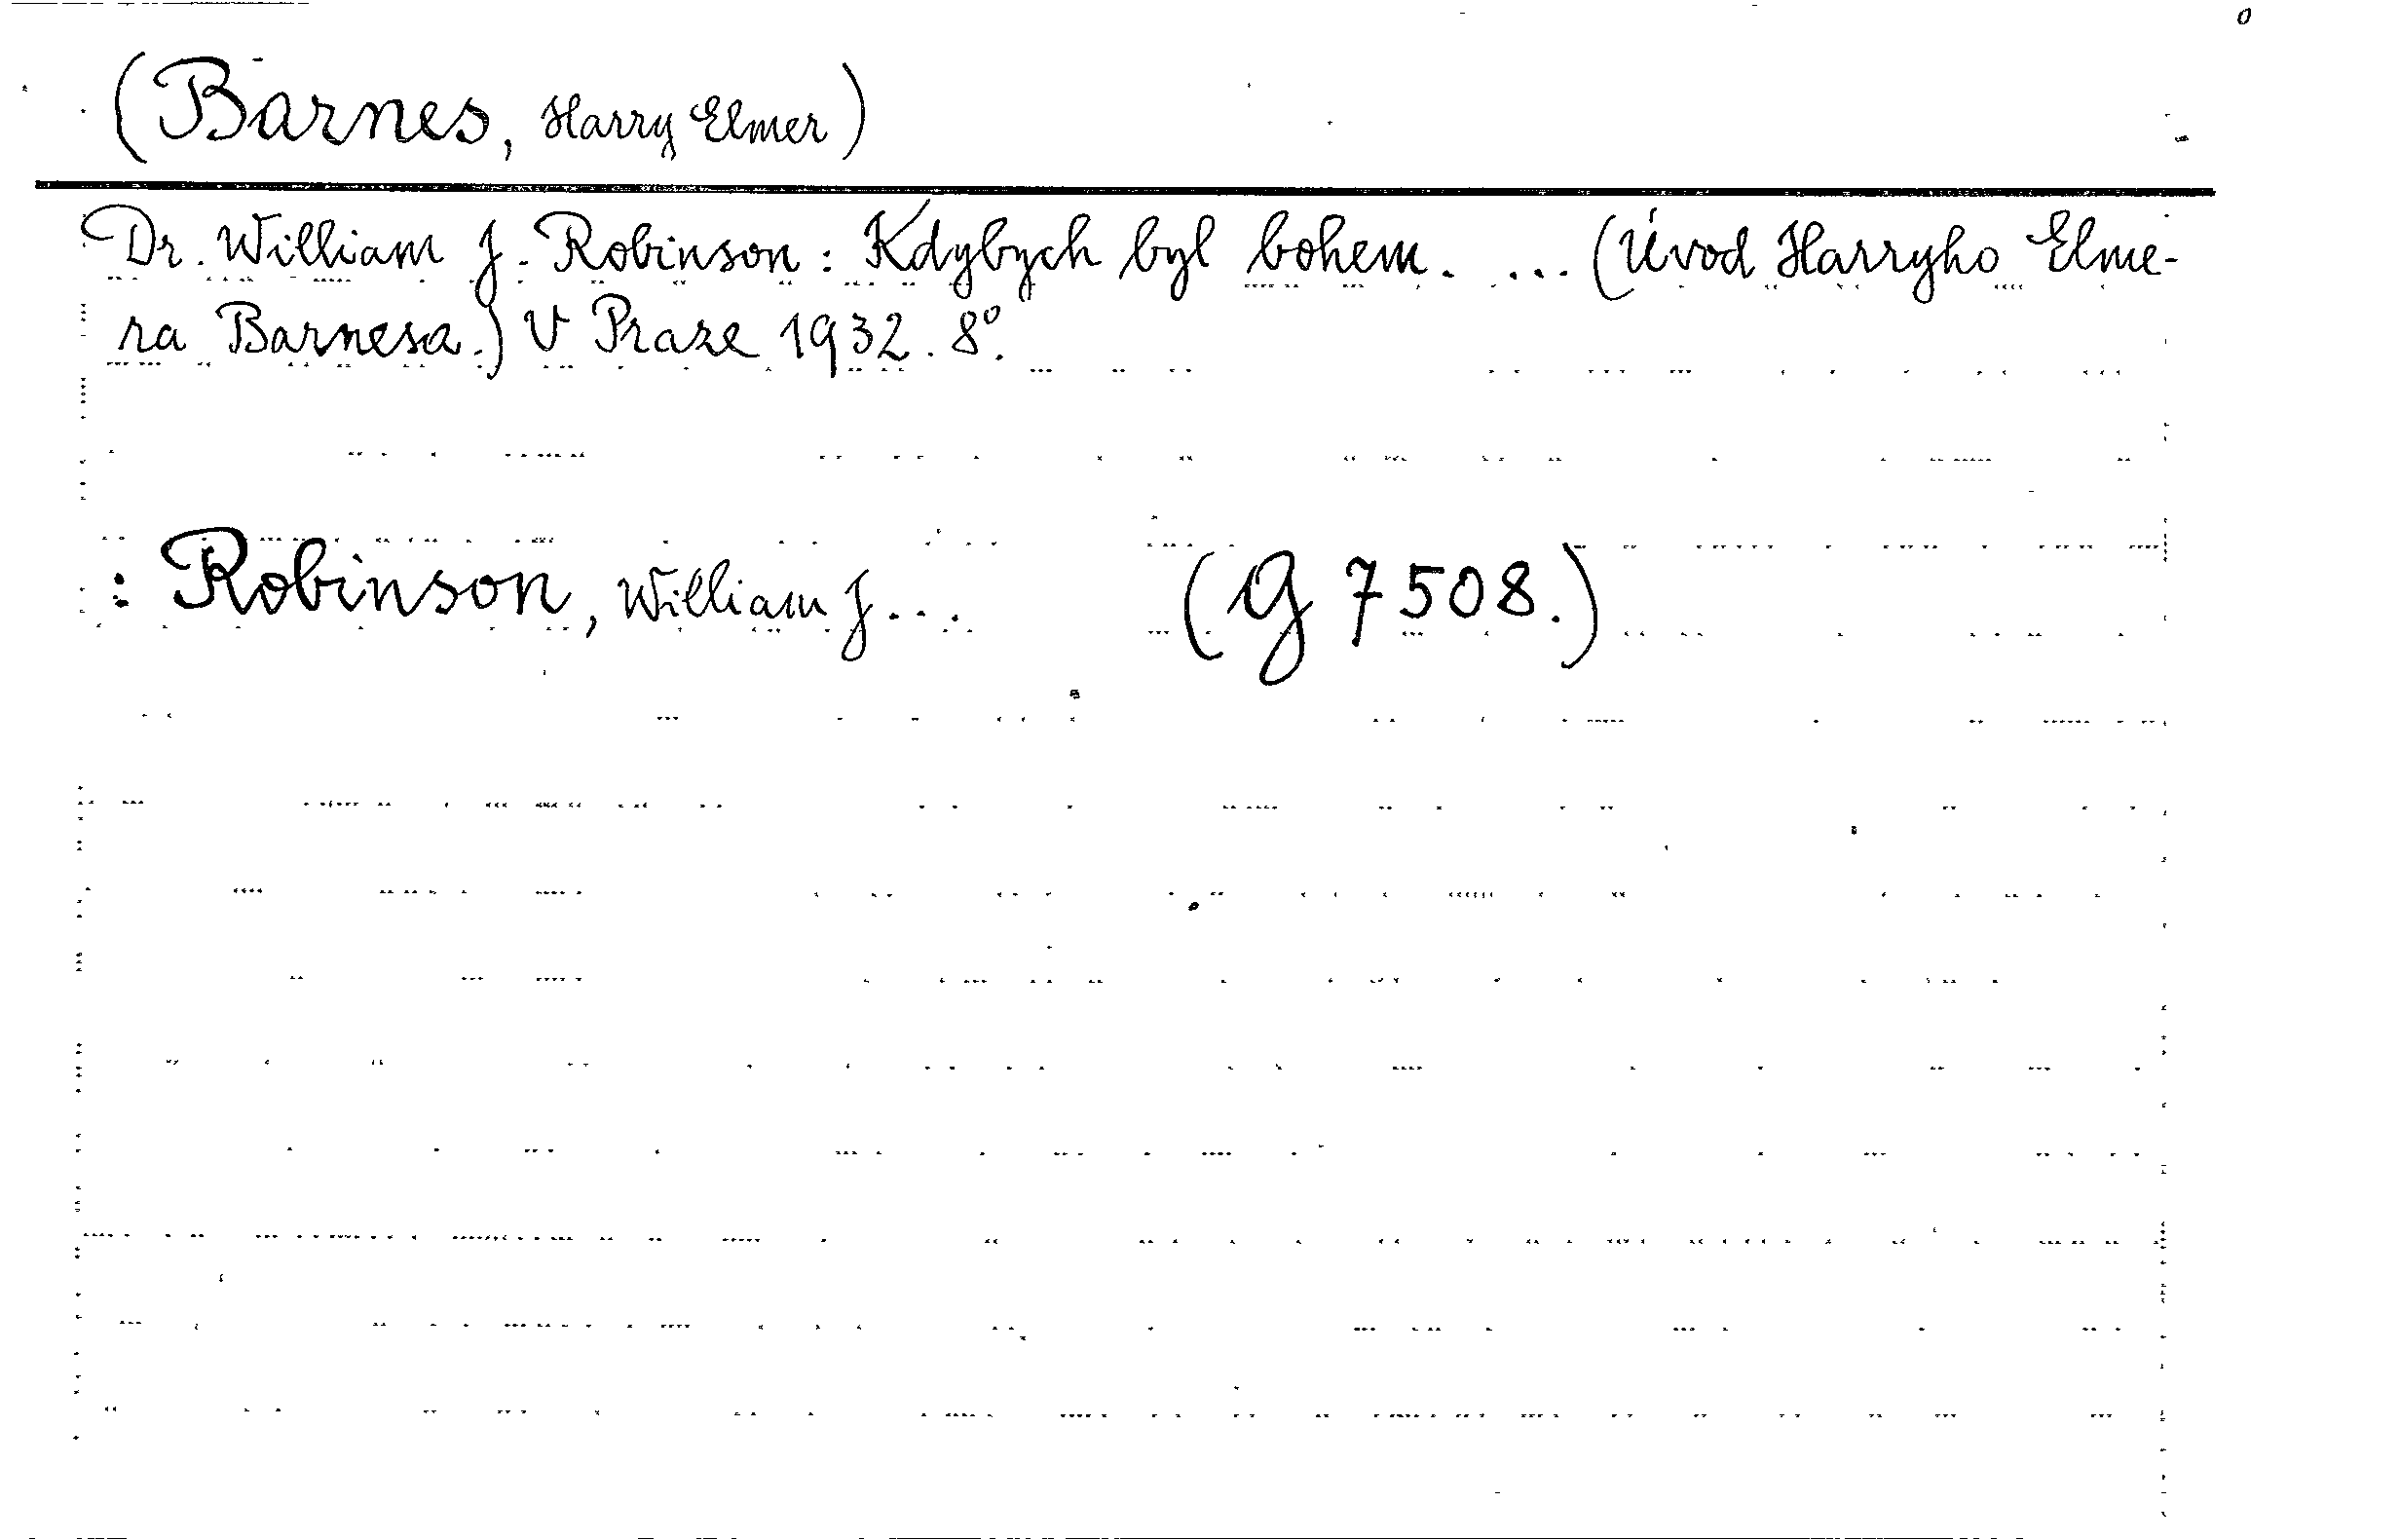 (Barnes, Harry Elmer)
Dr. William J. Robinson: Kdybych byl bohem. ... (Úvod Harryho Elme-
ra Barnesa.) V Praze 1932. 8°.
: Robinson, William J... (G 7508.)